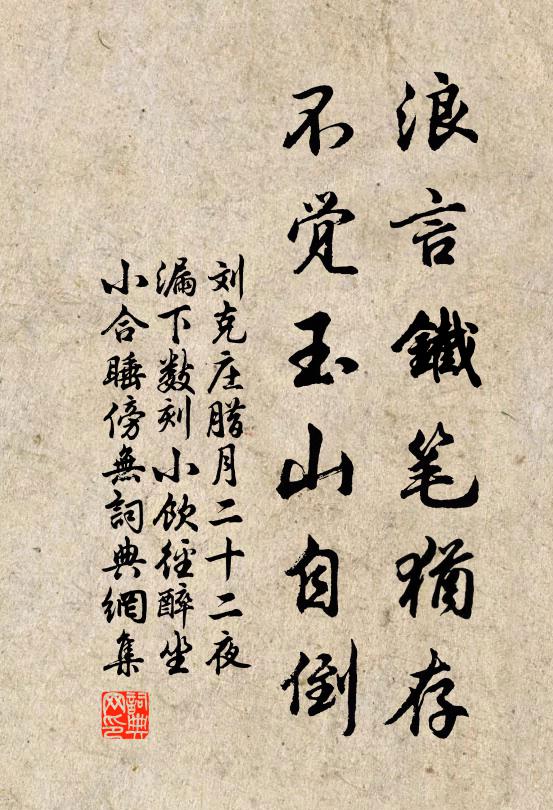 浪言鐵笔猶存
不觉玉山自倒
刘克庄腊月二十二夜
漏下数刻小飲徑醉坐
小合睡傍無詞典網集
詞典
网印